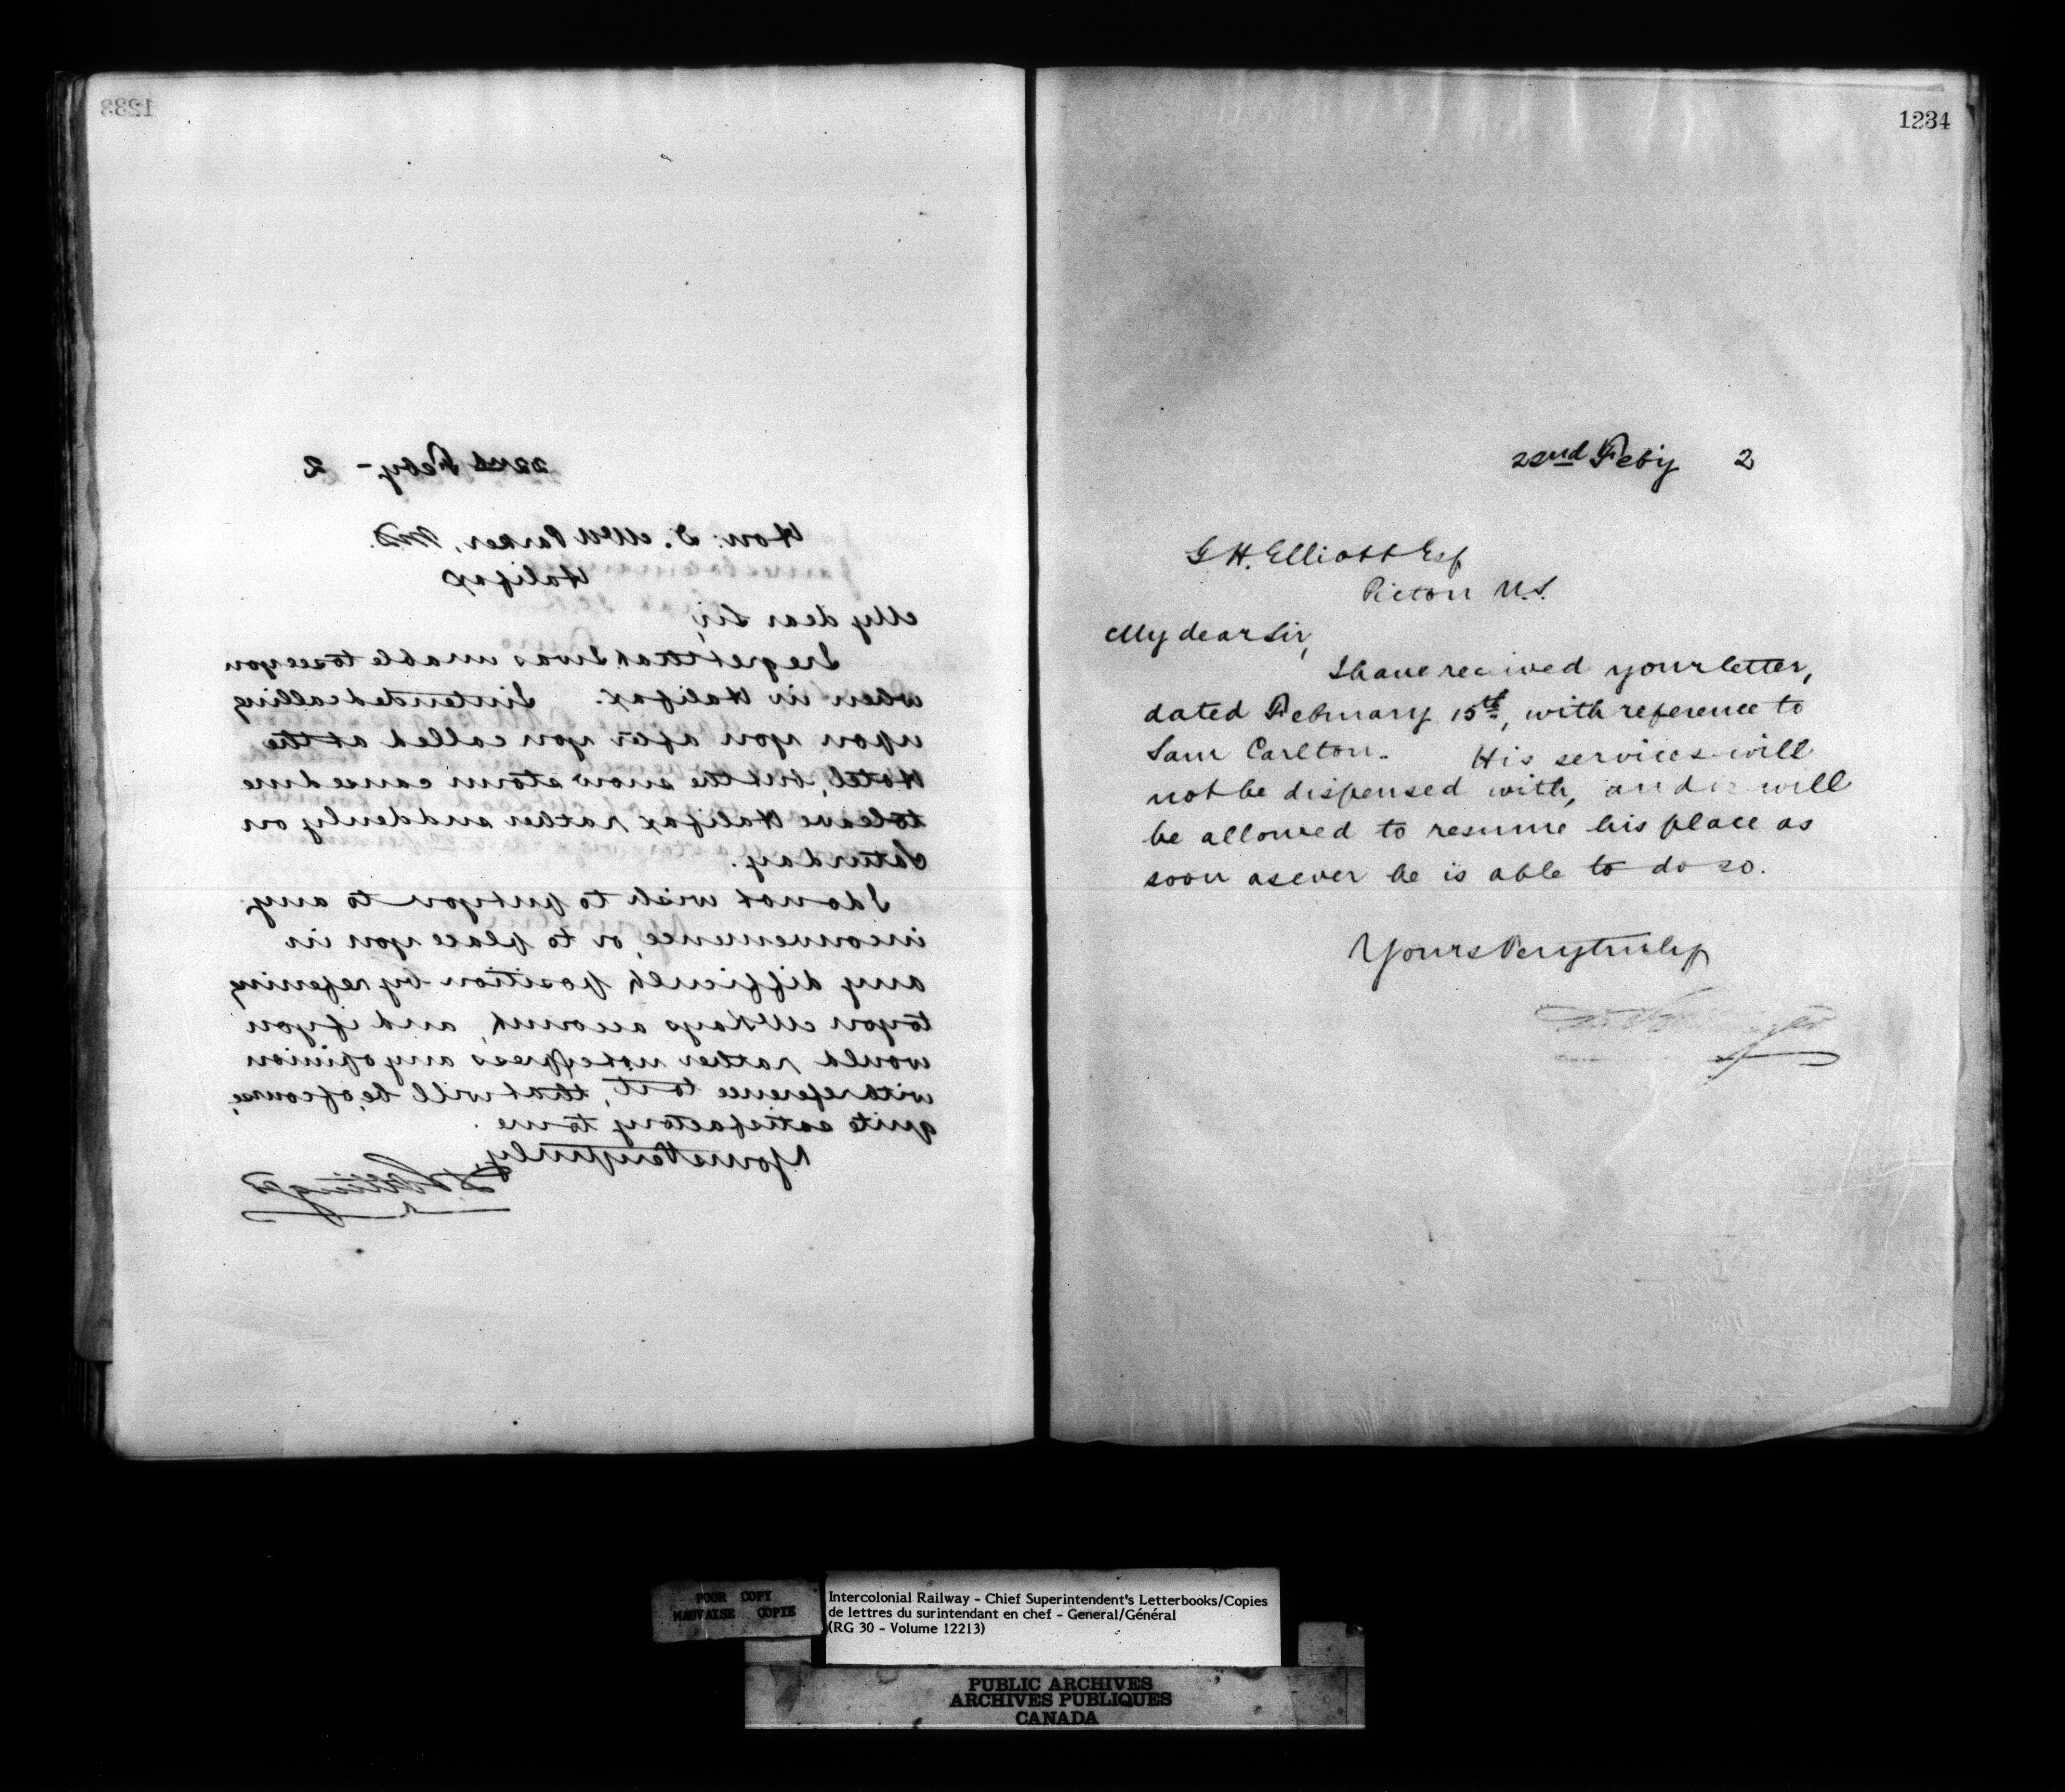 1233
22nd Feby - 2
Hon: D. McN Parker, M.D.
Halifax
My dear Sir,
I regret that I was unable to see you
when in Halifax. I intended calling
upon you after you called at the
Hotel, but the snow storm caused me
to leave Halifax rather suddenly on
Saturday.
I do not wish to put you to any
inconvenience, or to place you in
any difficult position by referring
to you McKays account, and if you
would rather not express any opinion
with reference to it, that will be, of course,
quite satisfactory to me.
Yours Very truly,
D Pottinger
1234
22nd Feby 2
G H. Elliott Esq
Pictou N.S.
My dear Sir,
I have received your letter,
dated February 15th, with reference to
Sam Carlton. His services will
not be dispensed with, and will
be allowed to resume his place as
soon as ever he is able to do so.
Yours Very truly
D Pottinger
POOR COPY
MAUVAISE COPIE
Intercolonial Railway - Chief Superintendent's Letterbooks/Copies
de lettres du surintendant en chef - General/Général
(RG 30 - Volume 12213)
PUBLIC ARCHIVES
ARCHIVES PUBLIQUES
CANADA